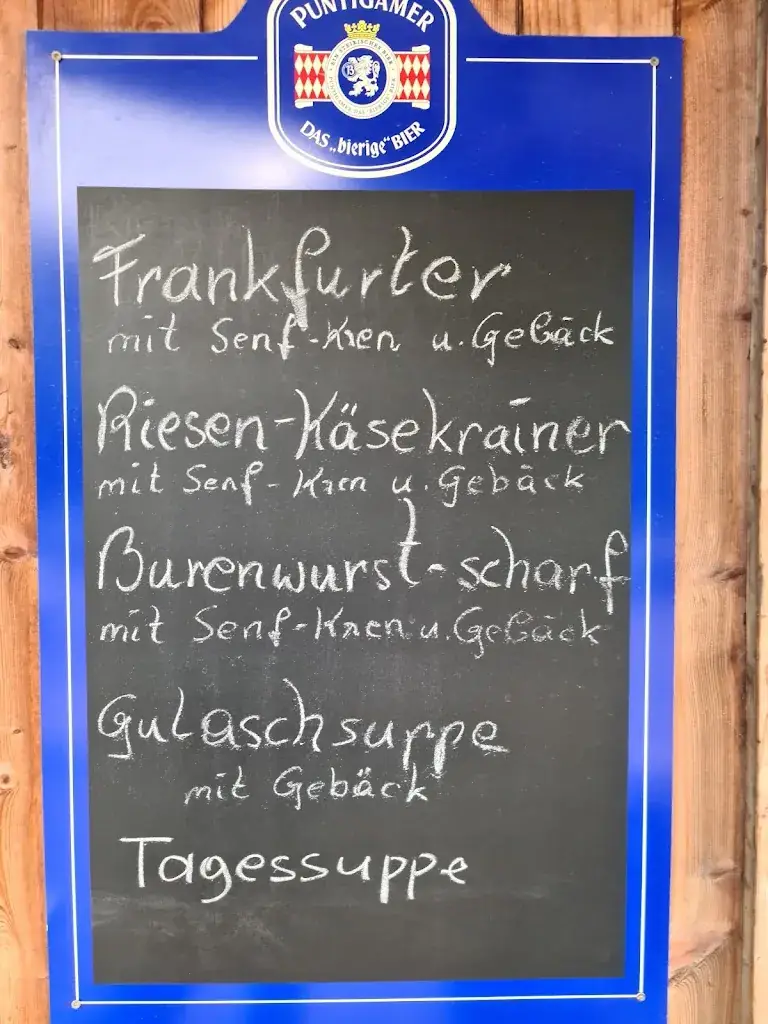 PUNTIGAMER
DAS „bierige" BIER
Frankfurter
mit Senf-Kren u. Gebäck
Riesen-Käsekrainer
mit Senf-Kren u. Gebäck
Burenwurst-scharf
mit Senf-Kren u. Gebäck
Gulaschsuppe
mit Gebäck
Tagessuppe